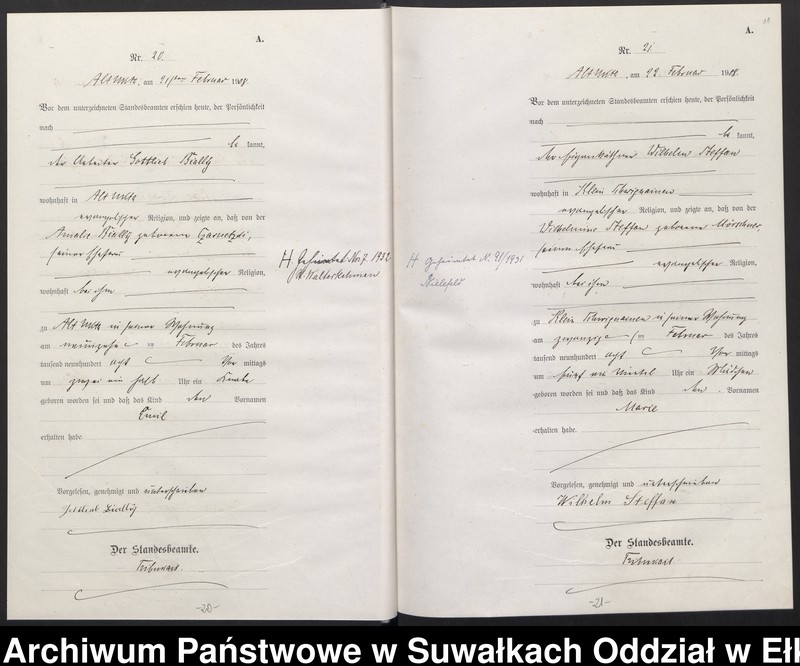 A.
Nr. 20.
am 21sten Februar 1908.
Vor dem unterzeichneten Standesbeamten erschien heute, der Persönlichkeit
nach
be kannt,
der Arbeiter Gottlieb Bially
wohnhaft in
evangelischer Religion, und zeigte an, daß von der
Amalie Bially geborene
seiner Ehefrau
evangelischer Religion,
wohnhaft bei ihm
zu in seiner Wohnung
am neunzehn ten Februar des Jahres
tausend neunhundert acht Vor mittags
um zwei ein halb Uhr ein Knabe
geboren worden sei und daß das Kind den Vornamen
Emil
erhalten habe.
Vorgelesen, genehmigt und unterschrieben
Gottlieb Bially
Der Standesbeamte.
-20-
H Geheiratet No. 7. 1932
A.
Nr. 21
am 22 Februar 1908.
Vor dem unterzeichneten Standesbeamten erschien heute, der Persönlichkeit
nach
be kannt,
der Eigenkäthner Wilhelm Steffan
wohnhaft in Klein
evangelischer Religion, und zeigte an, daß von der
Wilhelmine Steffan geborene
seiner Ehefrau
evangelischer Religion,
wohnhaft bei ihm
zu Klein in seiner Wohnung
am zwanzig ten Februar des Jahres
tausend neunhundert acht Vor mittags
um fünf ein Viertel Uhr ein Mädchen
geboren worden sei und daß das Kind den Vornamen
Marie
erhalten habe.
Vorgelesen, genehmigt und unterschrieben
Wilhelm Steffan
Der Standesbeamte.
-21-
H geheiratet N. 91/1931
Bielefeld
Archiwum Państwowe w Suwałkach Oddział w Ełk